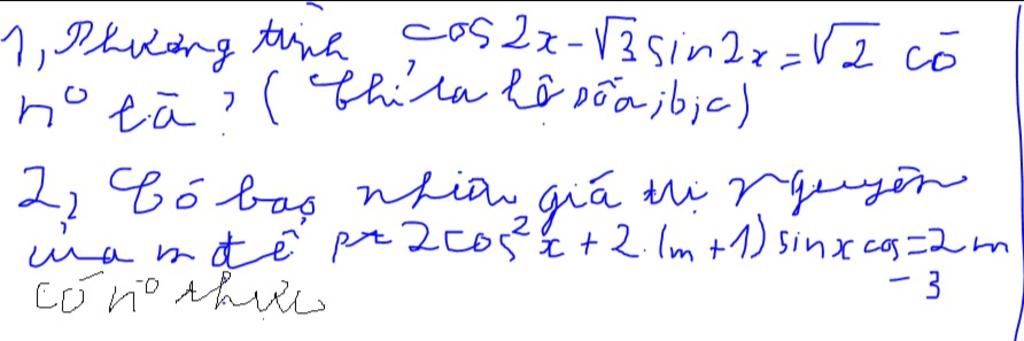 1, Phương trình cos2x - √3 sin2x = √2 có
n° là ? (chỉ ra hệ số a;b;c)
2, Có bao nhiêu giá trị nguyên
của m để pt 2cos²x + 2.(m+1) sinx cos = 2m
- 3
có n° thực